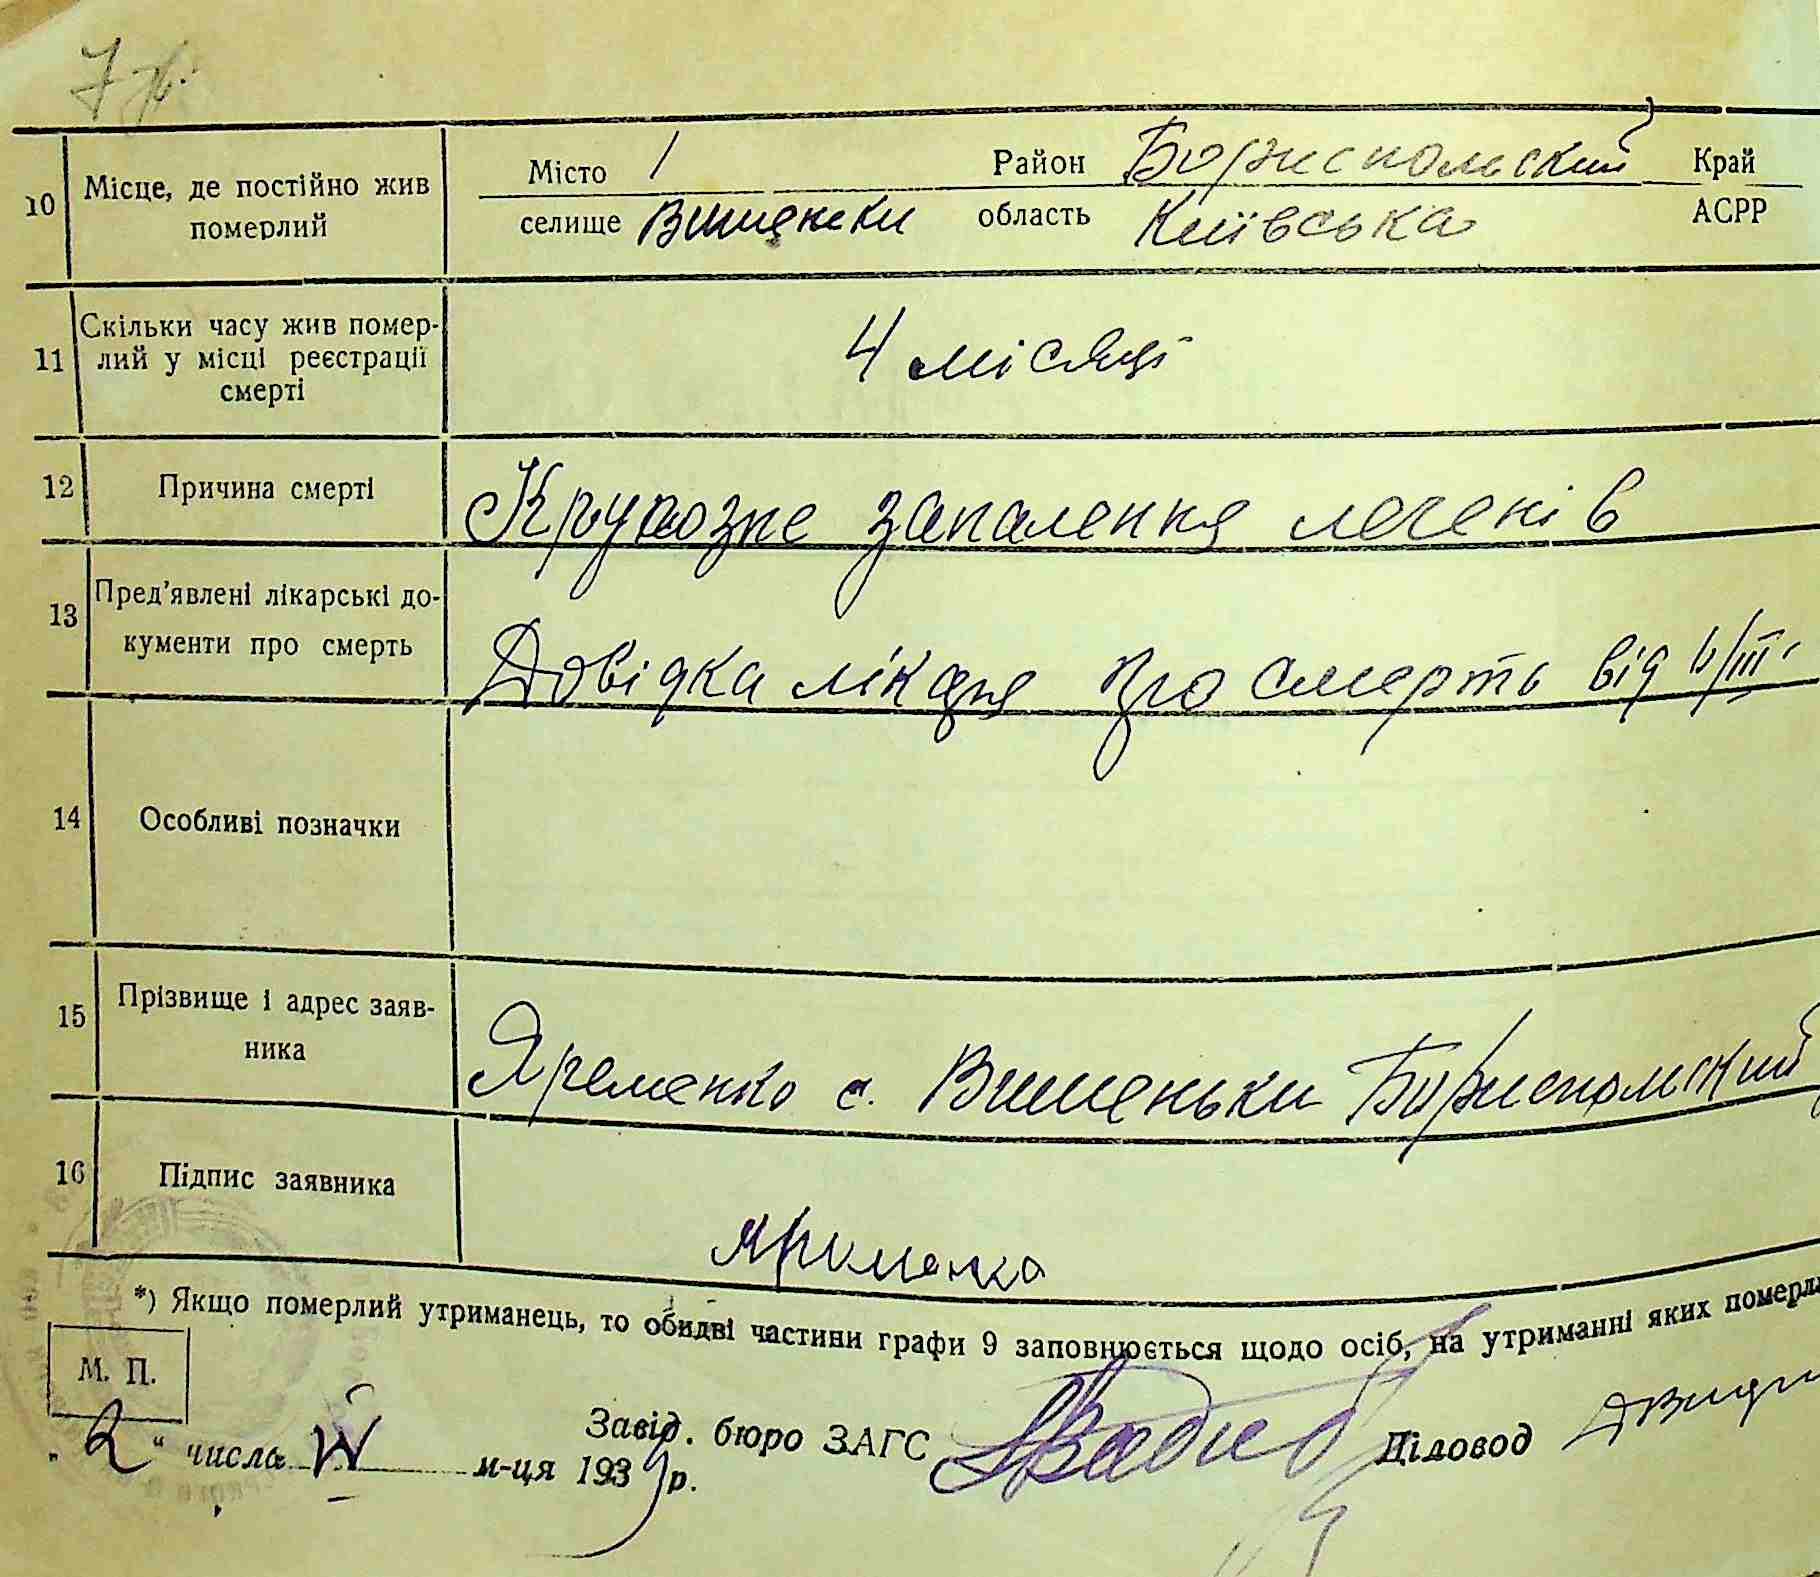 10 Місце, де постійно жив померлий
Місто / Район Бориспольский Край
селище Вишеньки область Київська АСРР
11 Скільки часу жив помер-
лий у місці реєстрації
смерті
4 місяці
12 Причина смерті
Крупозне запалення легенів
13 Пред'явлені лікарські до-
кументи про смерть
Довідка лікаря про смерть від
14 Особливі позначки
15 Прізвище і адрес заяв-
ника
Яременко с. Вишеньки Бориспольский
16 Підпис заявника
Ярименко
*) Якщо померлий утриманець, то обидві частини графи 9 заповнюється щодо осіб, на утриманні яких померл
М. П.
Завід. бюро ЗАГС Діловод
„2“ числа IV м-ця 1939 р.